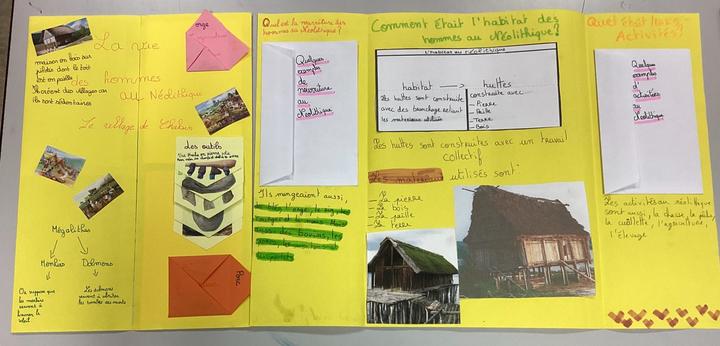 La vie
des hommes
au Néolithique
Le village de
maison en bois sur
pilotis dont le toit
est en paille
Ils créent des villages car
ils sont sédentaires
orge
des outils
Mégalithes
Menhirs Dolmens
On suppose que
les menhirs
servent à
le
soleil
Les dolmens
servent à abriter
les tombes des morts
Porc
Quel est la nourriture des
hommes au Néolithique?
Quelques
exemples
de
nourriture
au
Néolithique
Ils mangeaient aussi,
Comment était l'habitat des
hommes au Néolithique?
L'habitat au néolithique
habitat huttes
Les huttes sont construite
avec des branchage reliant
les materiaux utilisés
construite avec...
- Pierre
- Paille
- Terre
- Bois
Les huttes sont construites avec un travail
collectif
materiaux utilisés sont:
- La pierre
- Le bois
- La paille
- La terre
Quel était leurs
Activités?
Quelques
exemples
d'
activitées
au
Néolithique
Les activités au néolithique
sont aussi, la chasse, la pêche,
la cueillette, l'agriculture,
l'élevage